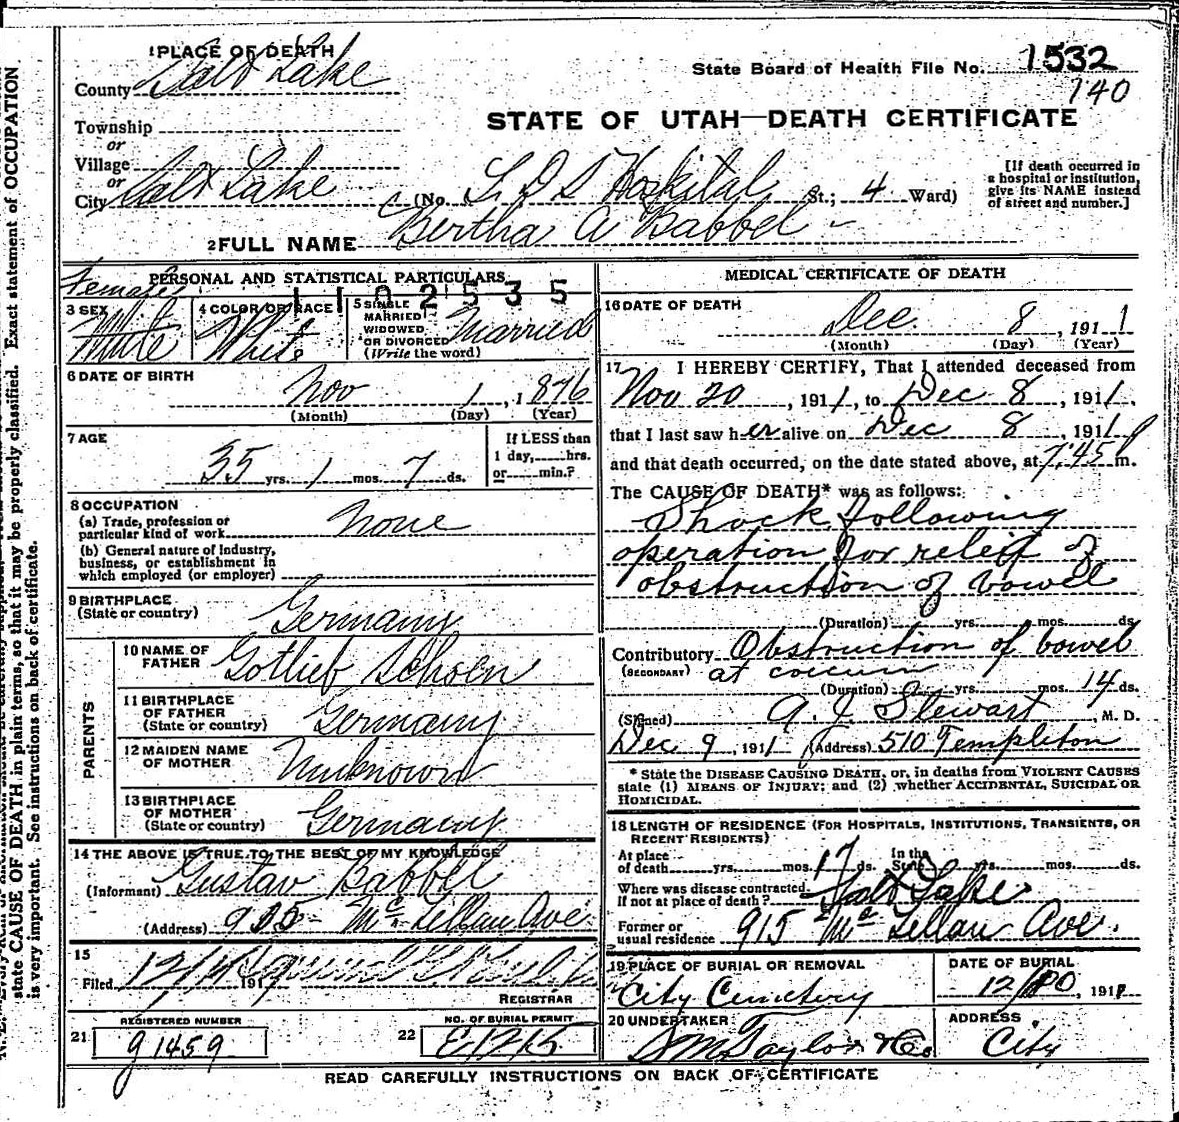 1 PLACE OF DEATH
County Salt Lake
State Board of Health File No. 1532
140
STATE OF UTAH—DEATH CERTIFICATE
Township
or
Village
or
City Salt Lake (No. L D S Hospital St.; 4 Ward)
[If death occurred in
a hospital or institution,
give its NAME instead
of street and number.]
2 FULL NAME Bertha A Babbel
PERSONAL AND STATISTICAL PARTICULARS
Female
1102535
3 SEX White
4 COLOR OR RACE White
5 SINGLE
MARRIED
WIDOWED
OR DIVORCED
(Write the word) Married
6 DATE OF BIRTH
Nov 1, 1876
(Month) (Day) (Year)
7 AGE
35 yrs. 1 mos. 7 ds.
If LESS than
1 day, hrs.
or min.?
8 OCCUPATION
(a) Trade, profession or
particular kind of work None
(b) General nature of Industry,
business, or establishment in
which employed (or employer)
9 BIRTHPLACE
(State or country) Germany
PARENTS
10 NAME OF
FATHER Gotlieb Schoen
11 BIRTHPLACE
OF FATHER
(State or country) Germany
12 MAIDEN NAME
OF MOTHER Unknown
13 BIRTHPLACE
OF MOTHER
(State or country) Germany
14 THE ABOVE IS TRUE TO THE BEST OF MY KNOWLEDGE
(Informant) Gustav Babbel
(Address) 915 Mc Lellan Ave
15
Filed 12/ 191
REGISTRAR
REGISTERED NUMBER
21 91459
NO. OF BURIAL PERMIT
22 E1215
MEDICAL CERTIFICATE OF DEATH
16 DATE OF DEATH
Dec. 8, 1911
(Month) (Day) (Year)
17 I HEREBY CERTIFY, That I attended deceased from
Nov 20, 1911, to Dec 8, 1911,
that I last saw her alive on Dec 8, 1911
and that death occurred, on the date stated above, at 7:45 P m.
The CAUSE OF DEATH* was as follows:
Shock following
operation for releif of
obstruction of bowel
(Duration) yrs. mos. ds.
Contributory Obstruction of bowel
(SECONDARY) at coecum
(Duration) yrs. mos. 14 ds.
(Signed) A. J. Stewart, M. D.
Dec 9, 1911 (Address) 510 Templeton
* State the DISEASE CAUSING DEATH, or, in deaths from VIOLENT CAUSES
state (1) MEANS OF INJURY; and (2) whether ACCIDENTAL, SUICIDAL OR
HOMICIDAL.
18 LENGTH OF RESIDENCE (FOR HOSPITALS, INSTITUTIONS, TRANSIENTS, OR
RECENT RESIDENTS)
At place
of death yrs. mos. 17 ds. In the
State yrs. mos. ds.
Where was disease contracted
If not at place of death? Salt Lake
Former or
usual residence 915 Mc Lellan Ave.
19 PLACE OF BURIAL OR REMOVAL
City Cemetery
DATE OF BURIAL
12/10, 1911
20 UNDERTAKER
S M Taylor & Co
ADDRESS
City
READ CAREFULLY INSTRUCTIONS ON BACK OF CERTIFICATE
state CAUSE OF DEATH in plain terms, so that it may be properly classified. Exact statement of OCCUPATION
is very important. See instructions on back of certificate.